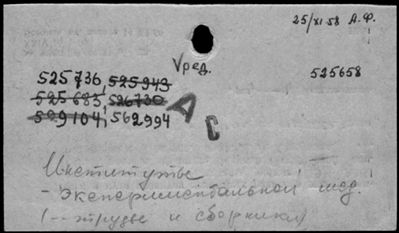 25/XI 58 А.Ф.
Vред.
525736, 525943 525658
525683, 526730
509104, 562994
АС
Институтъе
- Экспериментальной мед.
(-- труды и сборники)